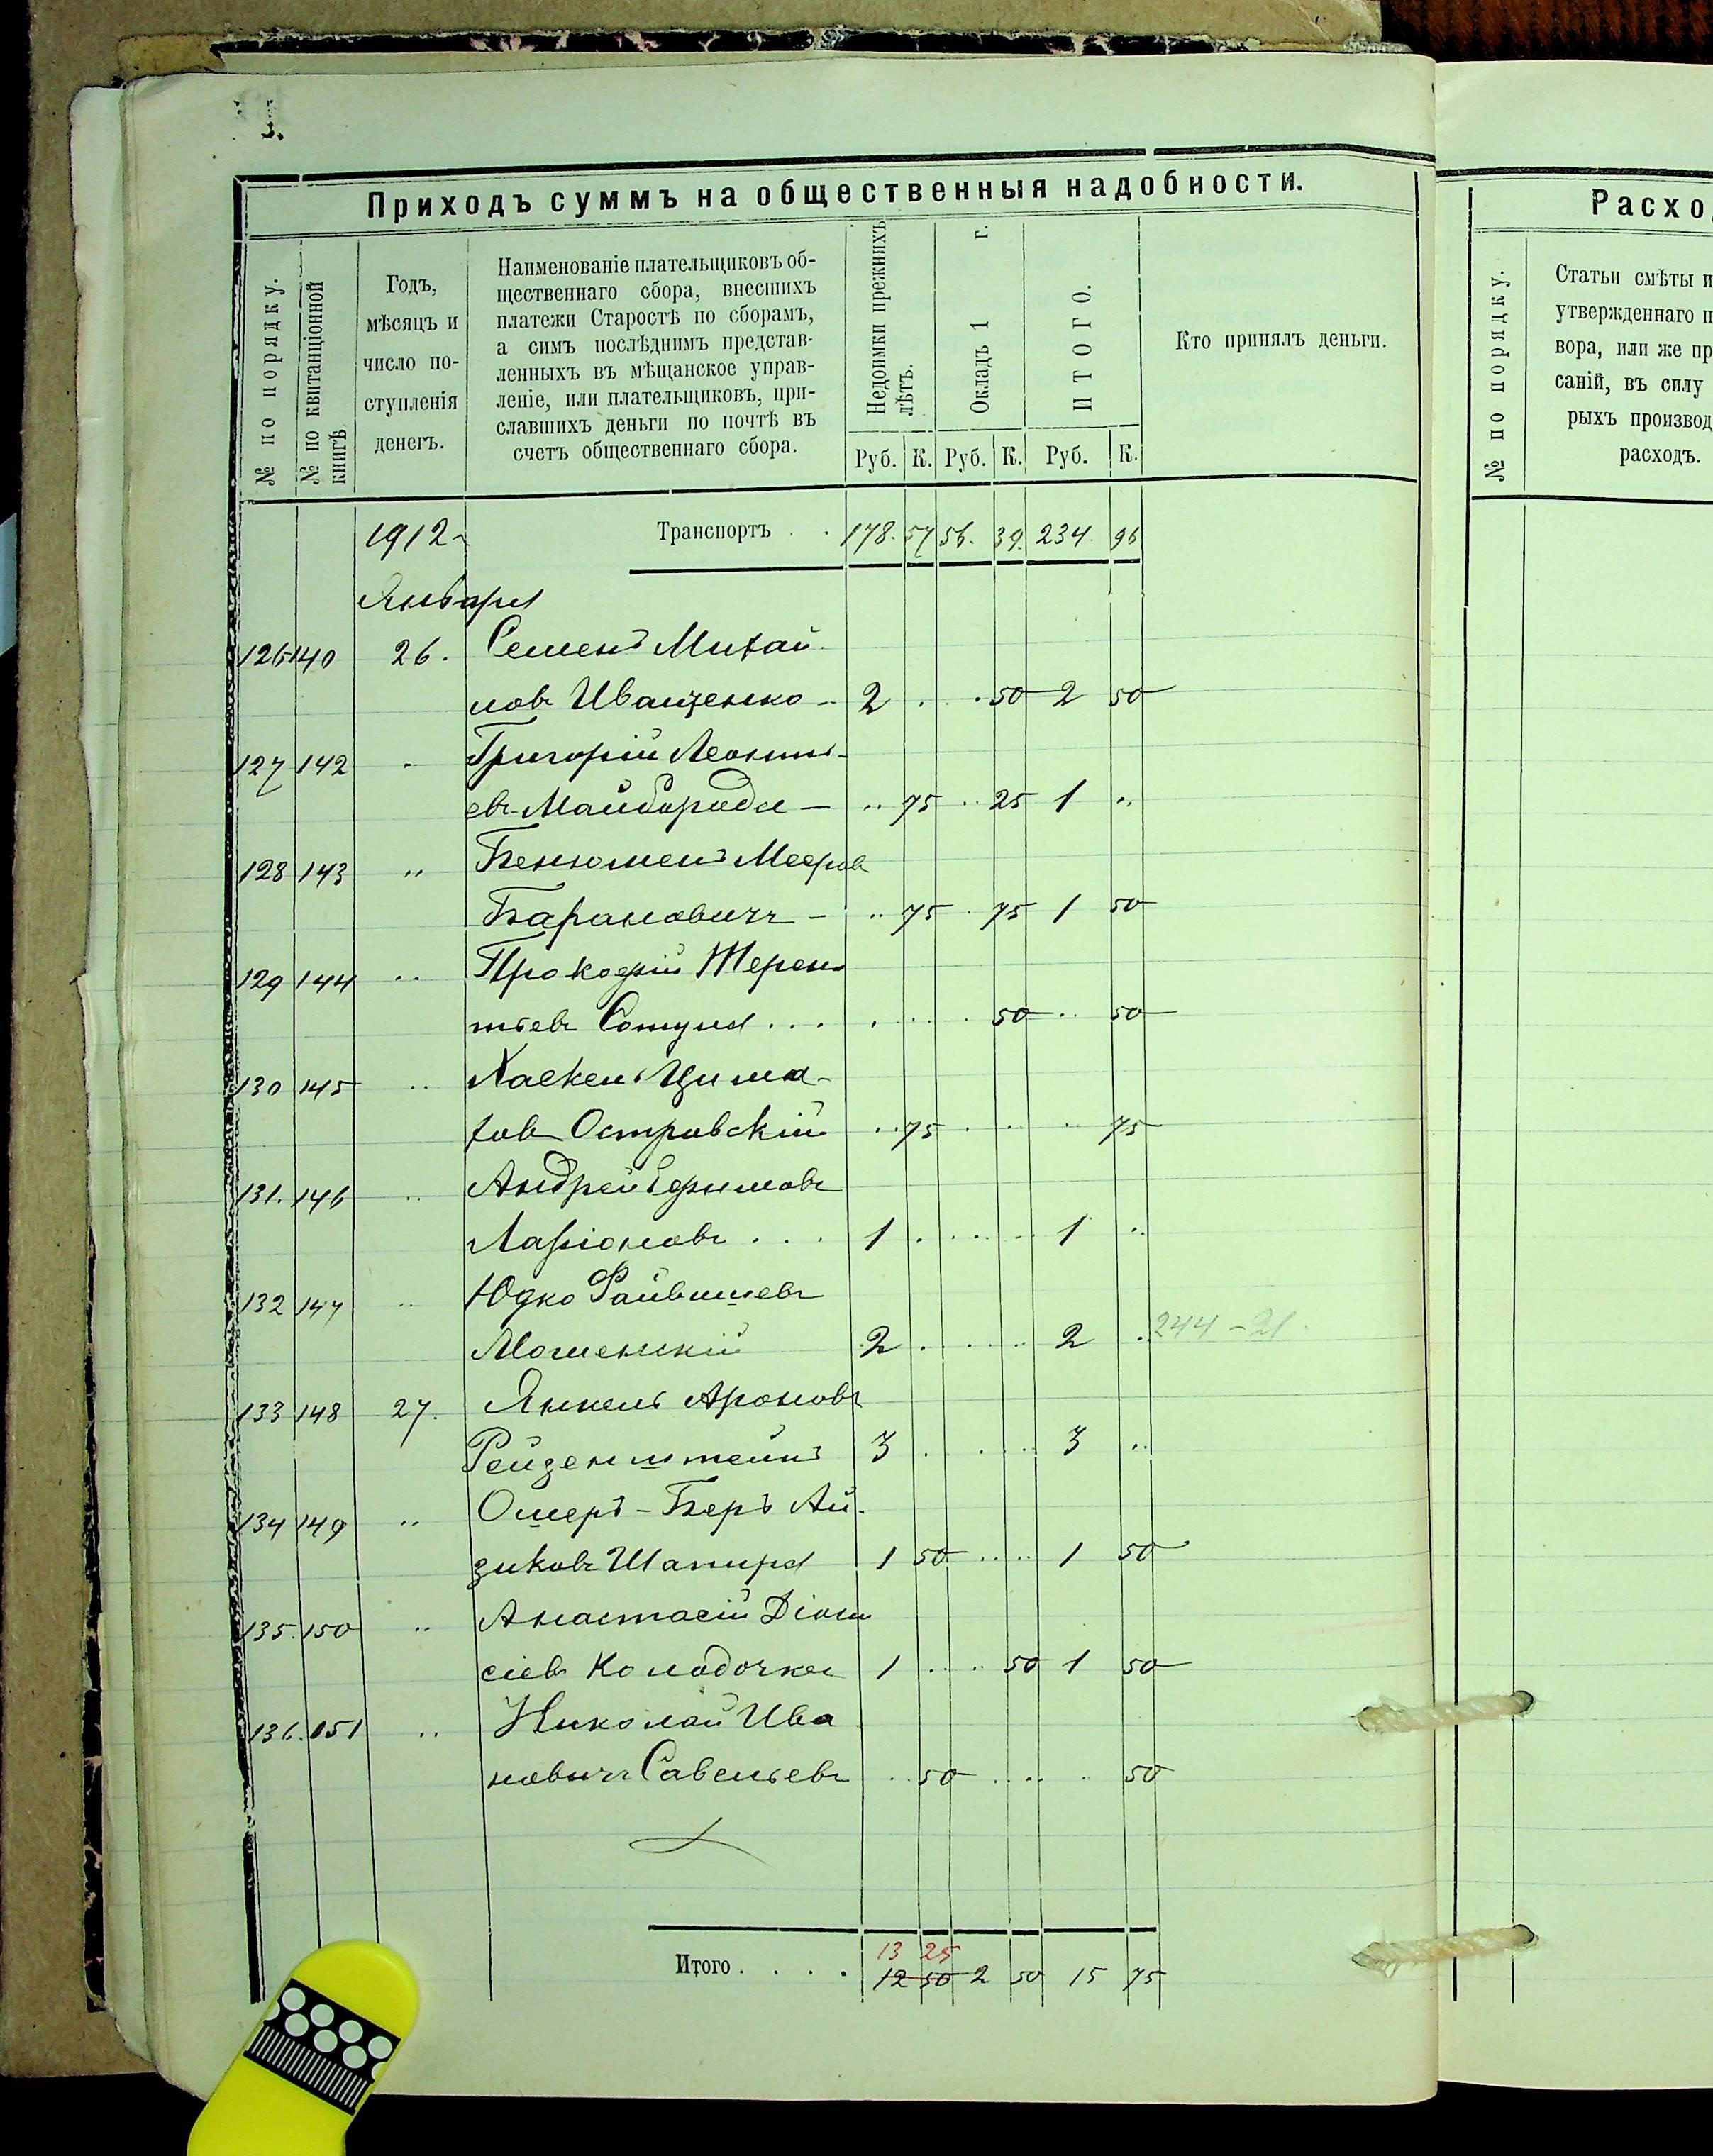 Приходъ суммъ на общественныя надобности.
№ по порядку.
№ по квитанціонной книгѣ
Годъ,
мѣсяцъ и
число по-
ступленія
денегъ.
Наименованіе плательщиковъ об-
щественнаго сбора, внесшихъ
платежи Старостѣ по сборамъ,
а симъ послѣднимъ представ-
ленныхъ въ мѣщанское управ-
леніе, или плательщиковъ, при-
славшихъ деньги по почтѣ въ
счетъ общественнаго сбора.
Недоимки прежнихъ лѣтъ.
Окладъ 1 г.
ИТОГО.
Руб. К. Руб. К. Руб. К.
Кто принялъ деньги.
1912 Транспортъ . . 178. 57 56. 39. 234 96
Января
126 140 26. Семенъ Михай-
ловъ Иващенко - 2 . . . 50 2 50
127 142 " Григорій Леонть-
евъ Майборода - .. 75 .. 25 1 ..
128 143 " Бенюменъ Мееровъ
Барановичъ - .. 75 . 75 1 50
129 144 .. Прокофій Терен-
тьевъ Сотуля . . . . . . . 50 .. 50
130 145 .. Хаскель Цима-
ховъ Островскій .. 75 . . . . 75
131. 146 .. Андрей Ефимовъ
Ларіоновъ . . . 1 . . . . 1 ..
132 147 .. Юдко Файвишевъ
Мошенскій 2 . . .. 2 . 244 - 21.
133 148 27. Янкель Ароновъ
Рейзенштейнъ 3 . . .. 3 ..
134 149 .. Ошеръ-Беръ Ай-
зиковъ Шапира 1 50 .. .. 1 50
135. 150 .. Анастасій Діони
сіевъ Колодочка 1 .. .. 50 1 50
136. 151 .. Николай Ива
новичъ Савельевъ .. 50 . . . . 50
13 25
Итого . . . . 12 50 2 50 15 75
Расхо
№ по порядку.
Статьи смѣты и
утвержденнаго п
вора, или же пр
саній, въ силу
рыхъ производ
расходъ.